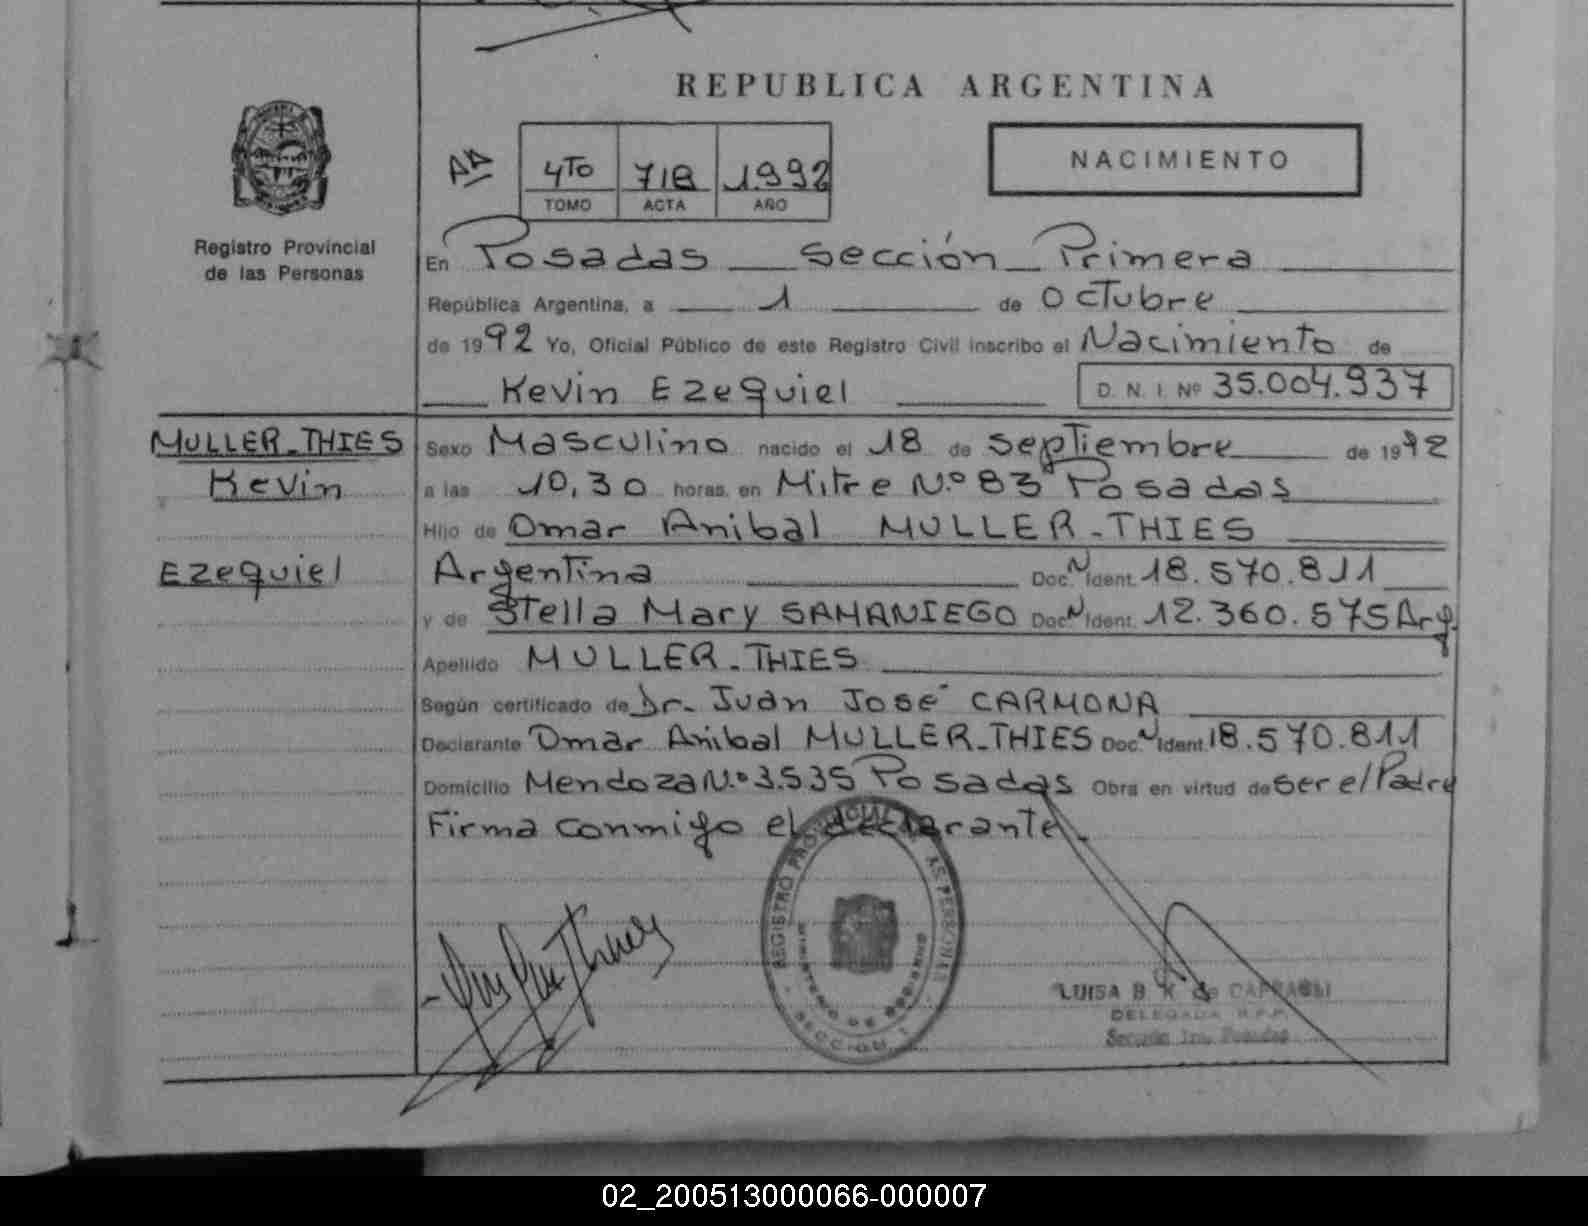 REPUBLICA ARGENTINA
NACIMIENTO
4TO 718 1.992
TOMO ACTA AÑO
Registro Provincial
de las Personas
En Posadas Sección Primera
República Argentina, a 1 de Octubre
de 1992 Yo, Oficial Público de este Registro Civil inscribo el Nacimiento de
Kevin Ezequiel D. N. I. Nº 35.004.937
MULLER-THIES
Kevin
Ezequiel
Sexo Masculino nacido el 18 de Septiembre de 1992
a las 10,30 horas, en Mitre N.º 83 Posadas
Hijo de Omar Anibal MULLER-THIES
Argentina Doc. N Ident. 18.570.811
y de Stella Mary SAMANIEGO Doc. N Ident. 12.360.575 Arg.
Apellido MULLER-THIES
Según certificado de Dr. Juan José CARMONA
Declarante Omar Anibal MULLER-THIES Doc. N Ident. 18.570.811
Domicilio Mendoza N.º 3.535 Posadas Obra en virtud de ser el Padre
Firma conmigo el declarante.
REGISTRO PROVINCIAL DE LAS PERSONAS
MINISTERIO DE GOBIERNO
SECCION 1
LUISA B. K. de
DELEGADA R.P.P.
Sección 1ra. Posadas
02_200513000066-000007